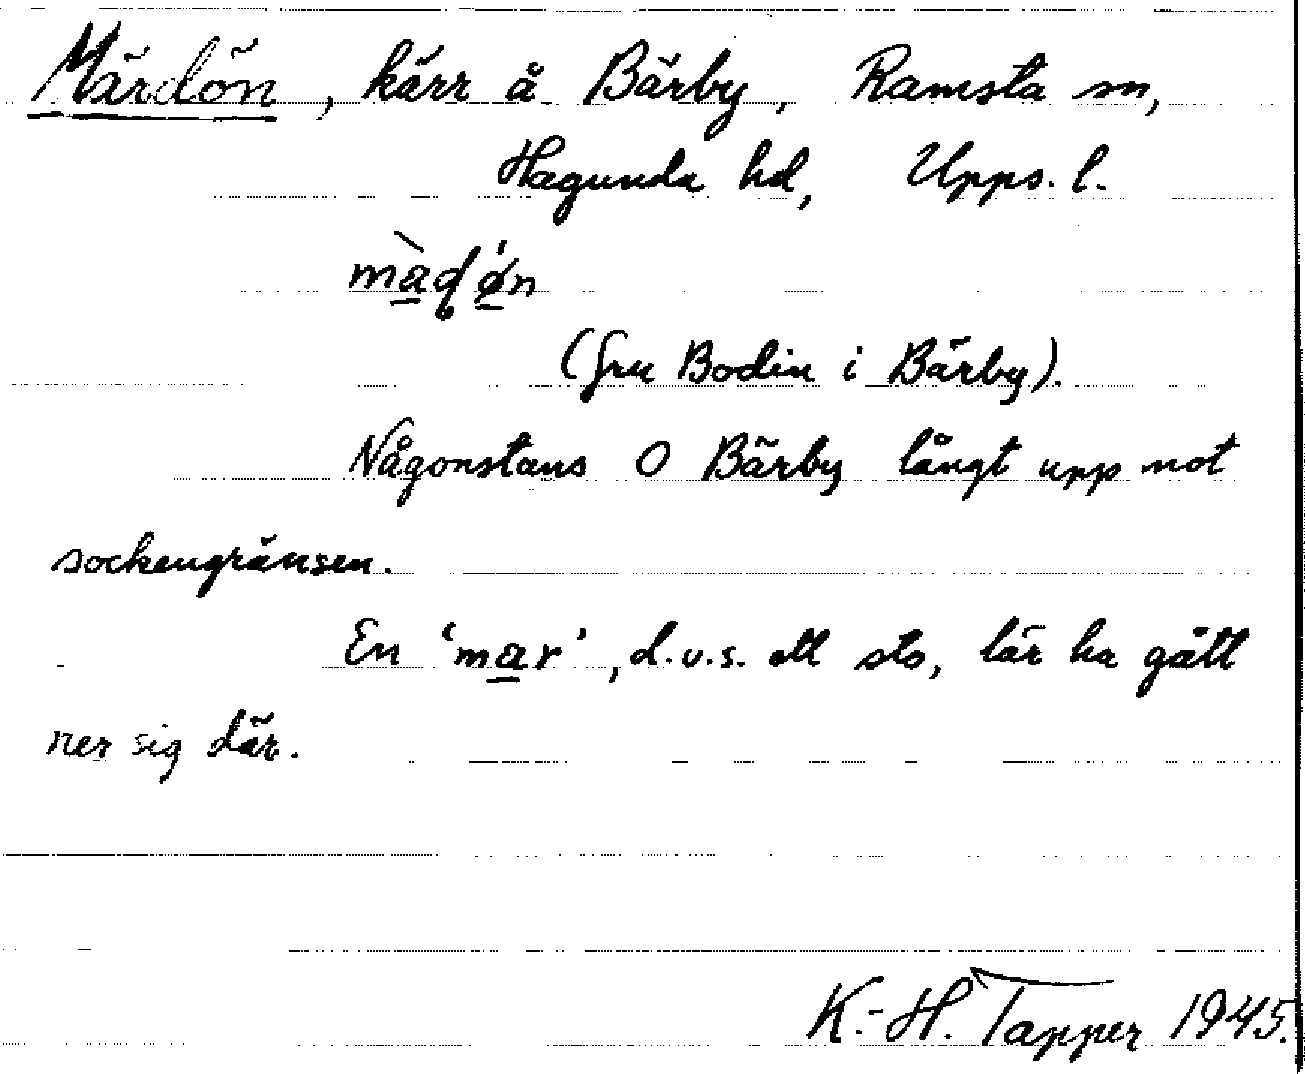 Märdön, kärr å Bärby, Ramsta sn,
Hagunda hd, Upps. l.
(fru Bodin i Bärby).
Någonstans O Bärby långt upp mot
sockengränsen.
En ‘mar’, d.v.s. ett sto, lär ha gått
ner sig där.
K.-H. Tapper 1945.